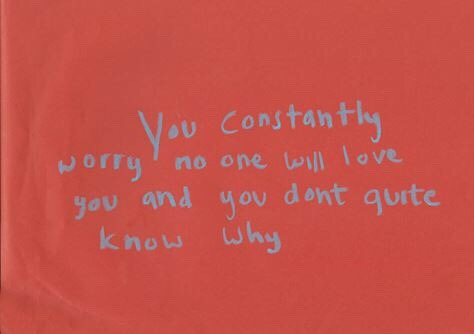 You constantly
worry no one will love
you and you dont quite
know why